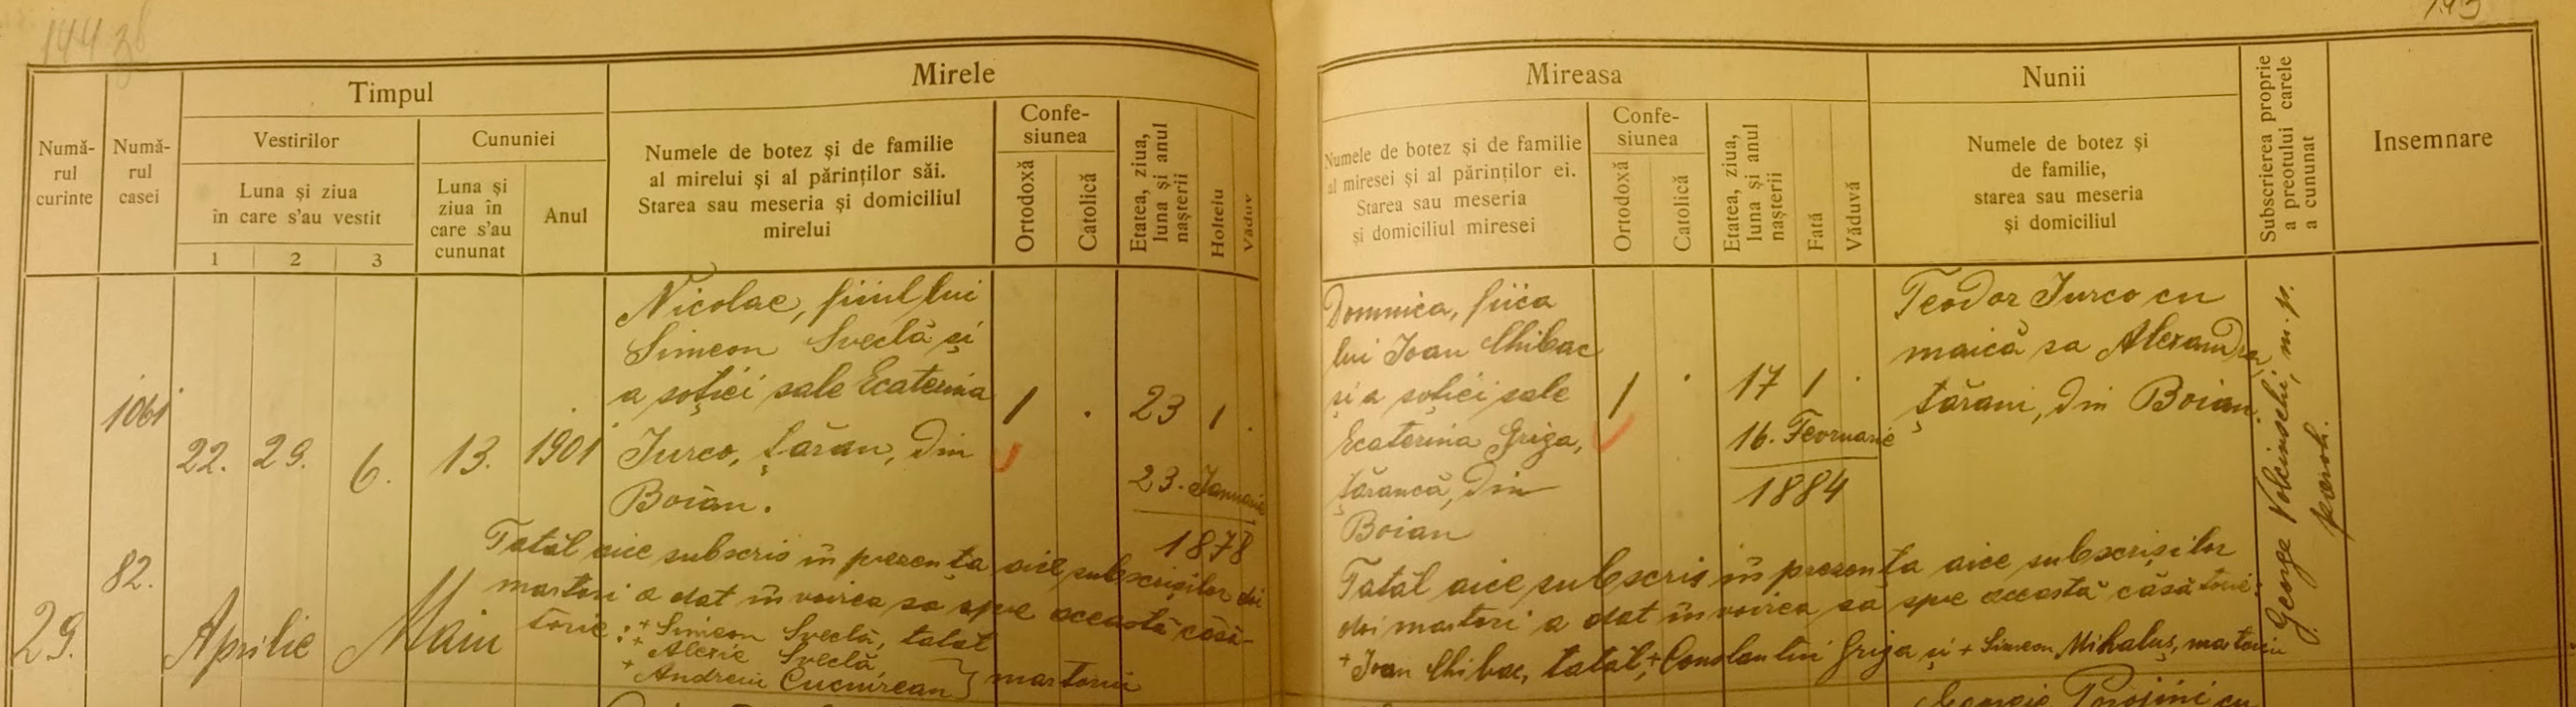 144
Timpul
Mirele
Mireasa
Nunii
Numă-
rul
curinte
Numă-
rul
casei
Vestirilor
Luna și ziua
în care s'au vestit
1 2 3
Cununiei
Luna și
ziua în
care s'au
cununat
Anul
Numele de botez și de familie
al mirelui și al părinților săi.
Starea sau meseria și domiciliul
mirelui
Confe-
siunea
Ortodoxă
Catolică
Etatea, ziua,
luna și anul
nașterii
Holteiu
Văduv
Numele de botez și de familie
al miresei și al părinților ei.
Starea sau meseria
și domiciliul miresei
Confe-
siunea
Ortodoxă
Catolică
Etatea, ziua,
luna și anul
nașterii
Fată
Văduvă
Numele de botez și
de familie,
starea sau meseria
și domiciliul
Subscrierea proprie
a preotului carele
a cununat
Insemnare
29.
1061
82.
22. 29. 6. 13. 1901
Aprilie Maiu
Nicolae, fiiul lui
Simeon Sveclă și
a soției sale Ecaterina
Jurco, țăran, din
Boian.
1 . 23 1 .
23. Ianuarie
1878
Tatăl aice subscris în prezența aice subscrișilor doi
martori a dat învoirea sa spre această căsă-
torie: + Simeon Sveclă, tatăl
+ Alexie Sveclă
+ Andreiu Cucuirean } martorii
Domnica, fiica
lui Ioan Chibac
și a soției sale
Ecaterina Griga,
țărancă, din
Boian
1 . 17 1 .
16. Fevruarie
1884
Teodor Jurco cu
maică sa Alexandra
țărani, din Boian.
Tatăl aice subscris în prezența aice subscrișilor
doi martori a dat învoirea sa spre această căsătorie:
+ Ioan Chibac, tatăl, + Constantin Griga și + Simeon Mihaluș, martorii
George Volcinschi, m. p.
paroh.